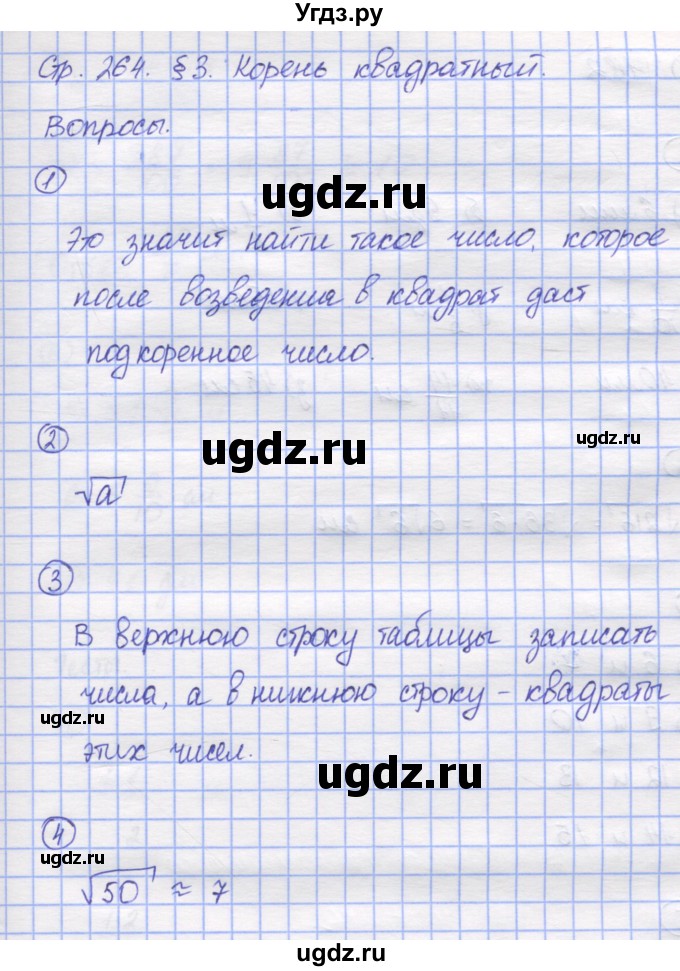 Угдз.ру
Стр. 264. §3. Корень квадратный.
Вопросы.
1
ugdz.ru
Это значит найти такое число, которое
после возведения в квадрат даст
подкоренное число.
2
ugdz.ru
ugdz.ru
√a
3
В верхнюю строку таблицы записать
числа, а в нижнюю строку – квадраты
ugdz.ru
этих чисел.
ugdz.ru
4
ugdz.ru
√50 ≈ 7